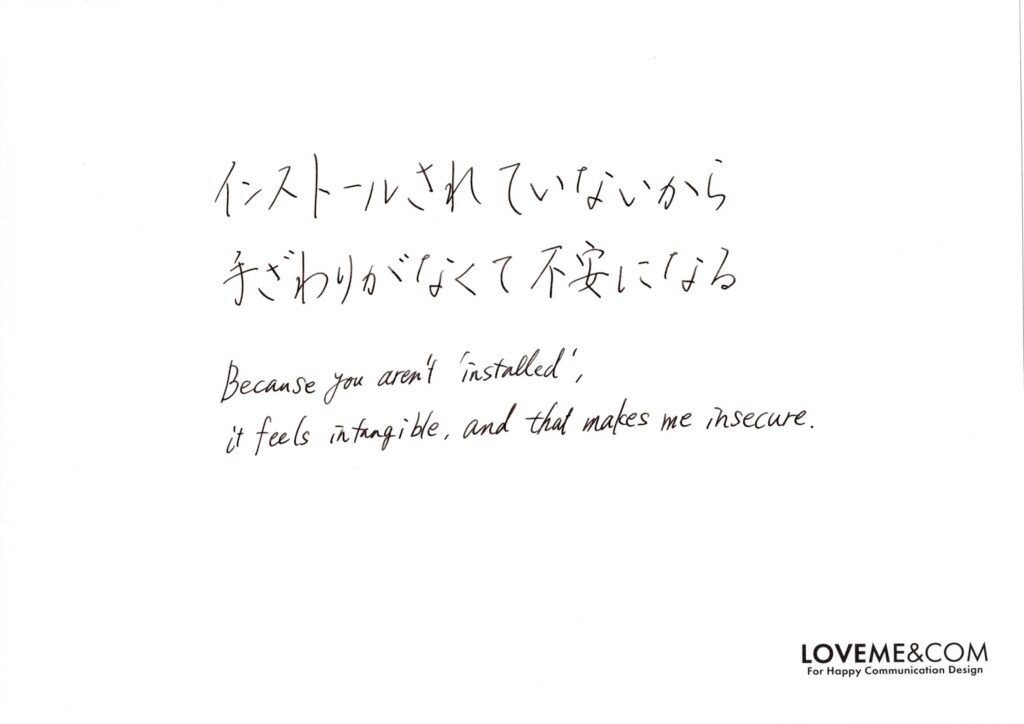 インストールされていないから
手ざわりがなくて不安になる
Because you aren't 'installed',
it feels intangible, and that makes me insecure.
LOVEME&COM
For Happy Communication Design